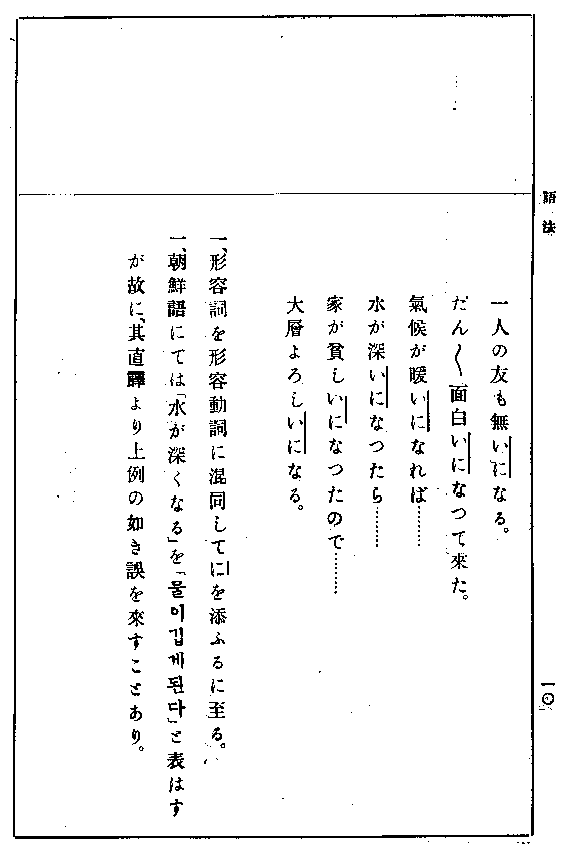 語法
一人の友も無いになる。
だん〱面白いになつて來た。
氣候が暖いになれば………
水が深いになつたら………
家が貧しいになつたので………
大層よろしいになる。
一、形容詞を形容動詞に混同してにを添ふるに至る。
一、朝鮮語にては「水が深くなる」を「물이깁게된다」と表はす
が故に、其直譯より上例の如き誤を來すことあり。
一〇